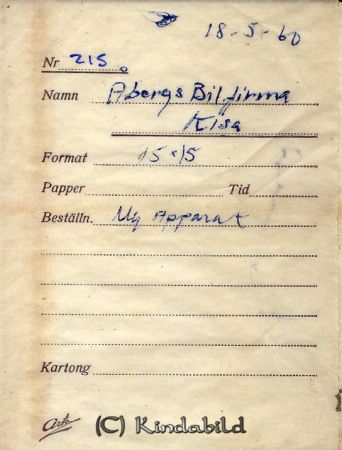 18-5-60
Nr 215
Namn Åbergs Bilfirma
Kisa
Format 15x15
Papper Tid
Beställn. My Apparat
Kartong
Ark (C) Kindabild